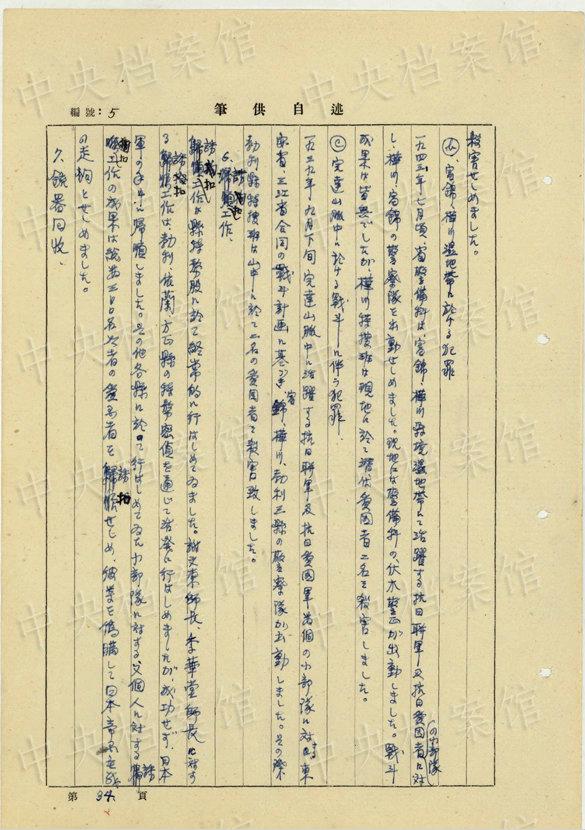 筆供自述
編號：5
殺害せしめました。
(b)、富錦、樺川湿地帯に於ける犯罪
一九四三年七月頃、省警備科は、富錦、樺川縣境湿地帯にて活躍する抗日聯軍及抗日愛国者(の小部隊)に対
し、樺川、富錦の警察隊を出動せしめました。現地には警備科の伏木警正が出動しました。戦斗
成果は皆無でしたが、樺川特捜班は現地に於て潜伏愛国者二名を殺害しました。
(c)完達山脈中に於ける戦斗に伴う犯罪、
一九三九年九月下旬、完達山脈中に活躍する抗日聯軍及抗日愛国軍若個の小部隊に対する東
安省、三江省合同の戦斗計画に基づき、富錦、樺川、勃利三縣の警察隊が出動しました。其の際
勃利縣特捜班は山中に於て一名の愛国者を殺害致しました。
6、工作、
工作は縣特務股に於て経常的に行はしめてゐました。謝文東師長、李華堂師長に対す
る工作は、勃利、依蘭、方正縣の特務密偵を通じて活発に行はしめましたが、成功せず、日本
軍の手中に帰順しました。其の他各縣に於て行はしめてゐた小部隊に対する、又個人に対する
工作の成果は約三百名の愛国者をせしめ、彼等を欺瞞して日本帝国主義
の走狗とせしめました。
7、銃器回収、
第 34 頁
中央档案馆